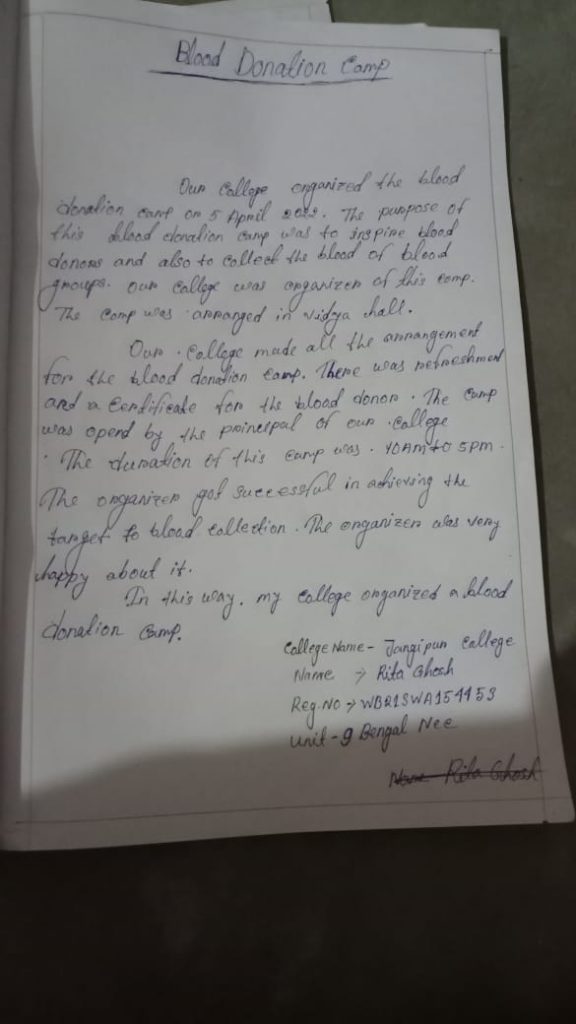 Blood Donation Camp
Our College organized the blood
donation camp on 5 April 2022. The purpose of
this blood donation camp was to inspire blood
donors and also to collect the blood of blood
groups. Our College was organizer of this camp.
The Camp was arranged in vidya hall.
Our College made all the arrangement
for the blood donation camp. There was refreshment
and a Certificate for the blood donor. The Camp
was opend by the principal of our College
. The duration of this Camp was . 10AM to 5PM.
The organizer got successful in achieving the
target to blood collection. The organizer was very
happy about it.
In this way, my College organized a blood
donation Camp.
College Name - Jangipur College
Name → Rita Ghosh
Reg. No → WB21SWA154453
Unit - 9 Bengal Ncc
Name Rita Ghosh